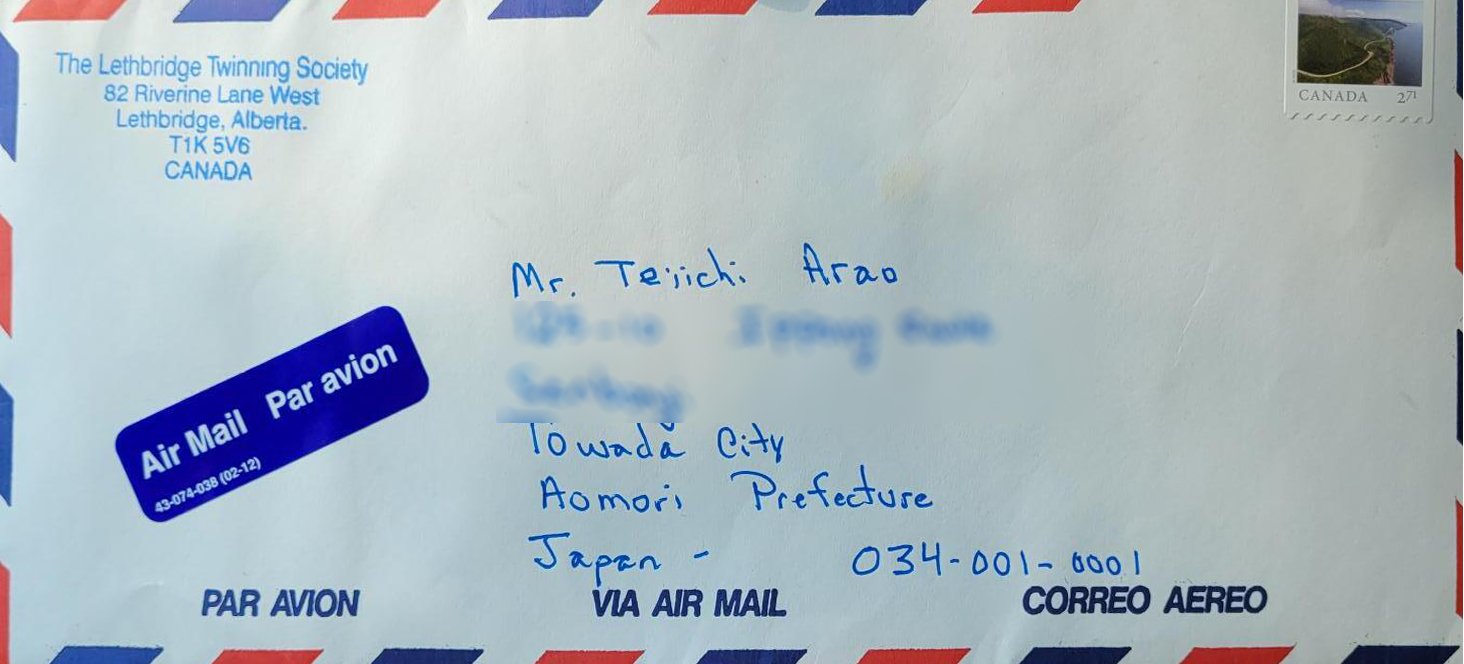 The Lethbridge Twinning Society
82 Riverine Lane West
Lethbridge, Alberta.
T1K 5V6
CANADA
CANADA 2⁷¹
Mr. Teiichi Arao
Air Mail Par avion
43-074-038 (02-12)
Towada City
Aomori Prefecture
Japan - 034-001-0001
PAR AVION VIA AIR MAIL CORREO AEREO